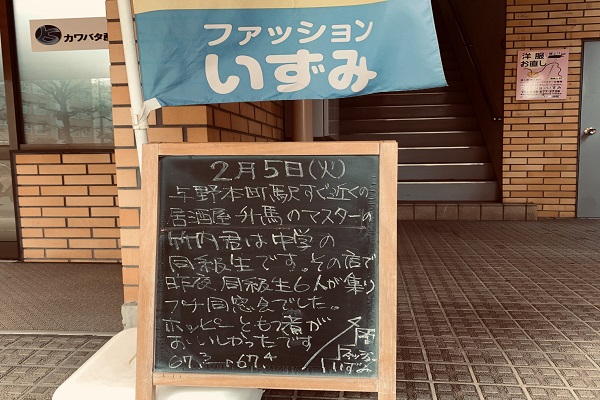 カワバタ
ファッション
いずみ
洋服
お直し
2月5日(火)
与野本町駅すぐ近くの
居酒屋 外馬のマスターの
竹内君は中学の
同級生です。その店で
昨夜、同級生6人が集り
プチ同窓会でした。
ホッピーともつ煮が
おいしかったです
67.2 67.4
ファッション
いずみ